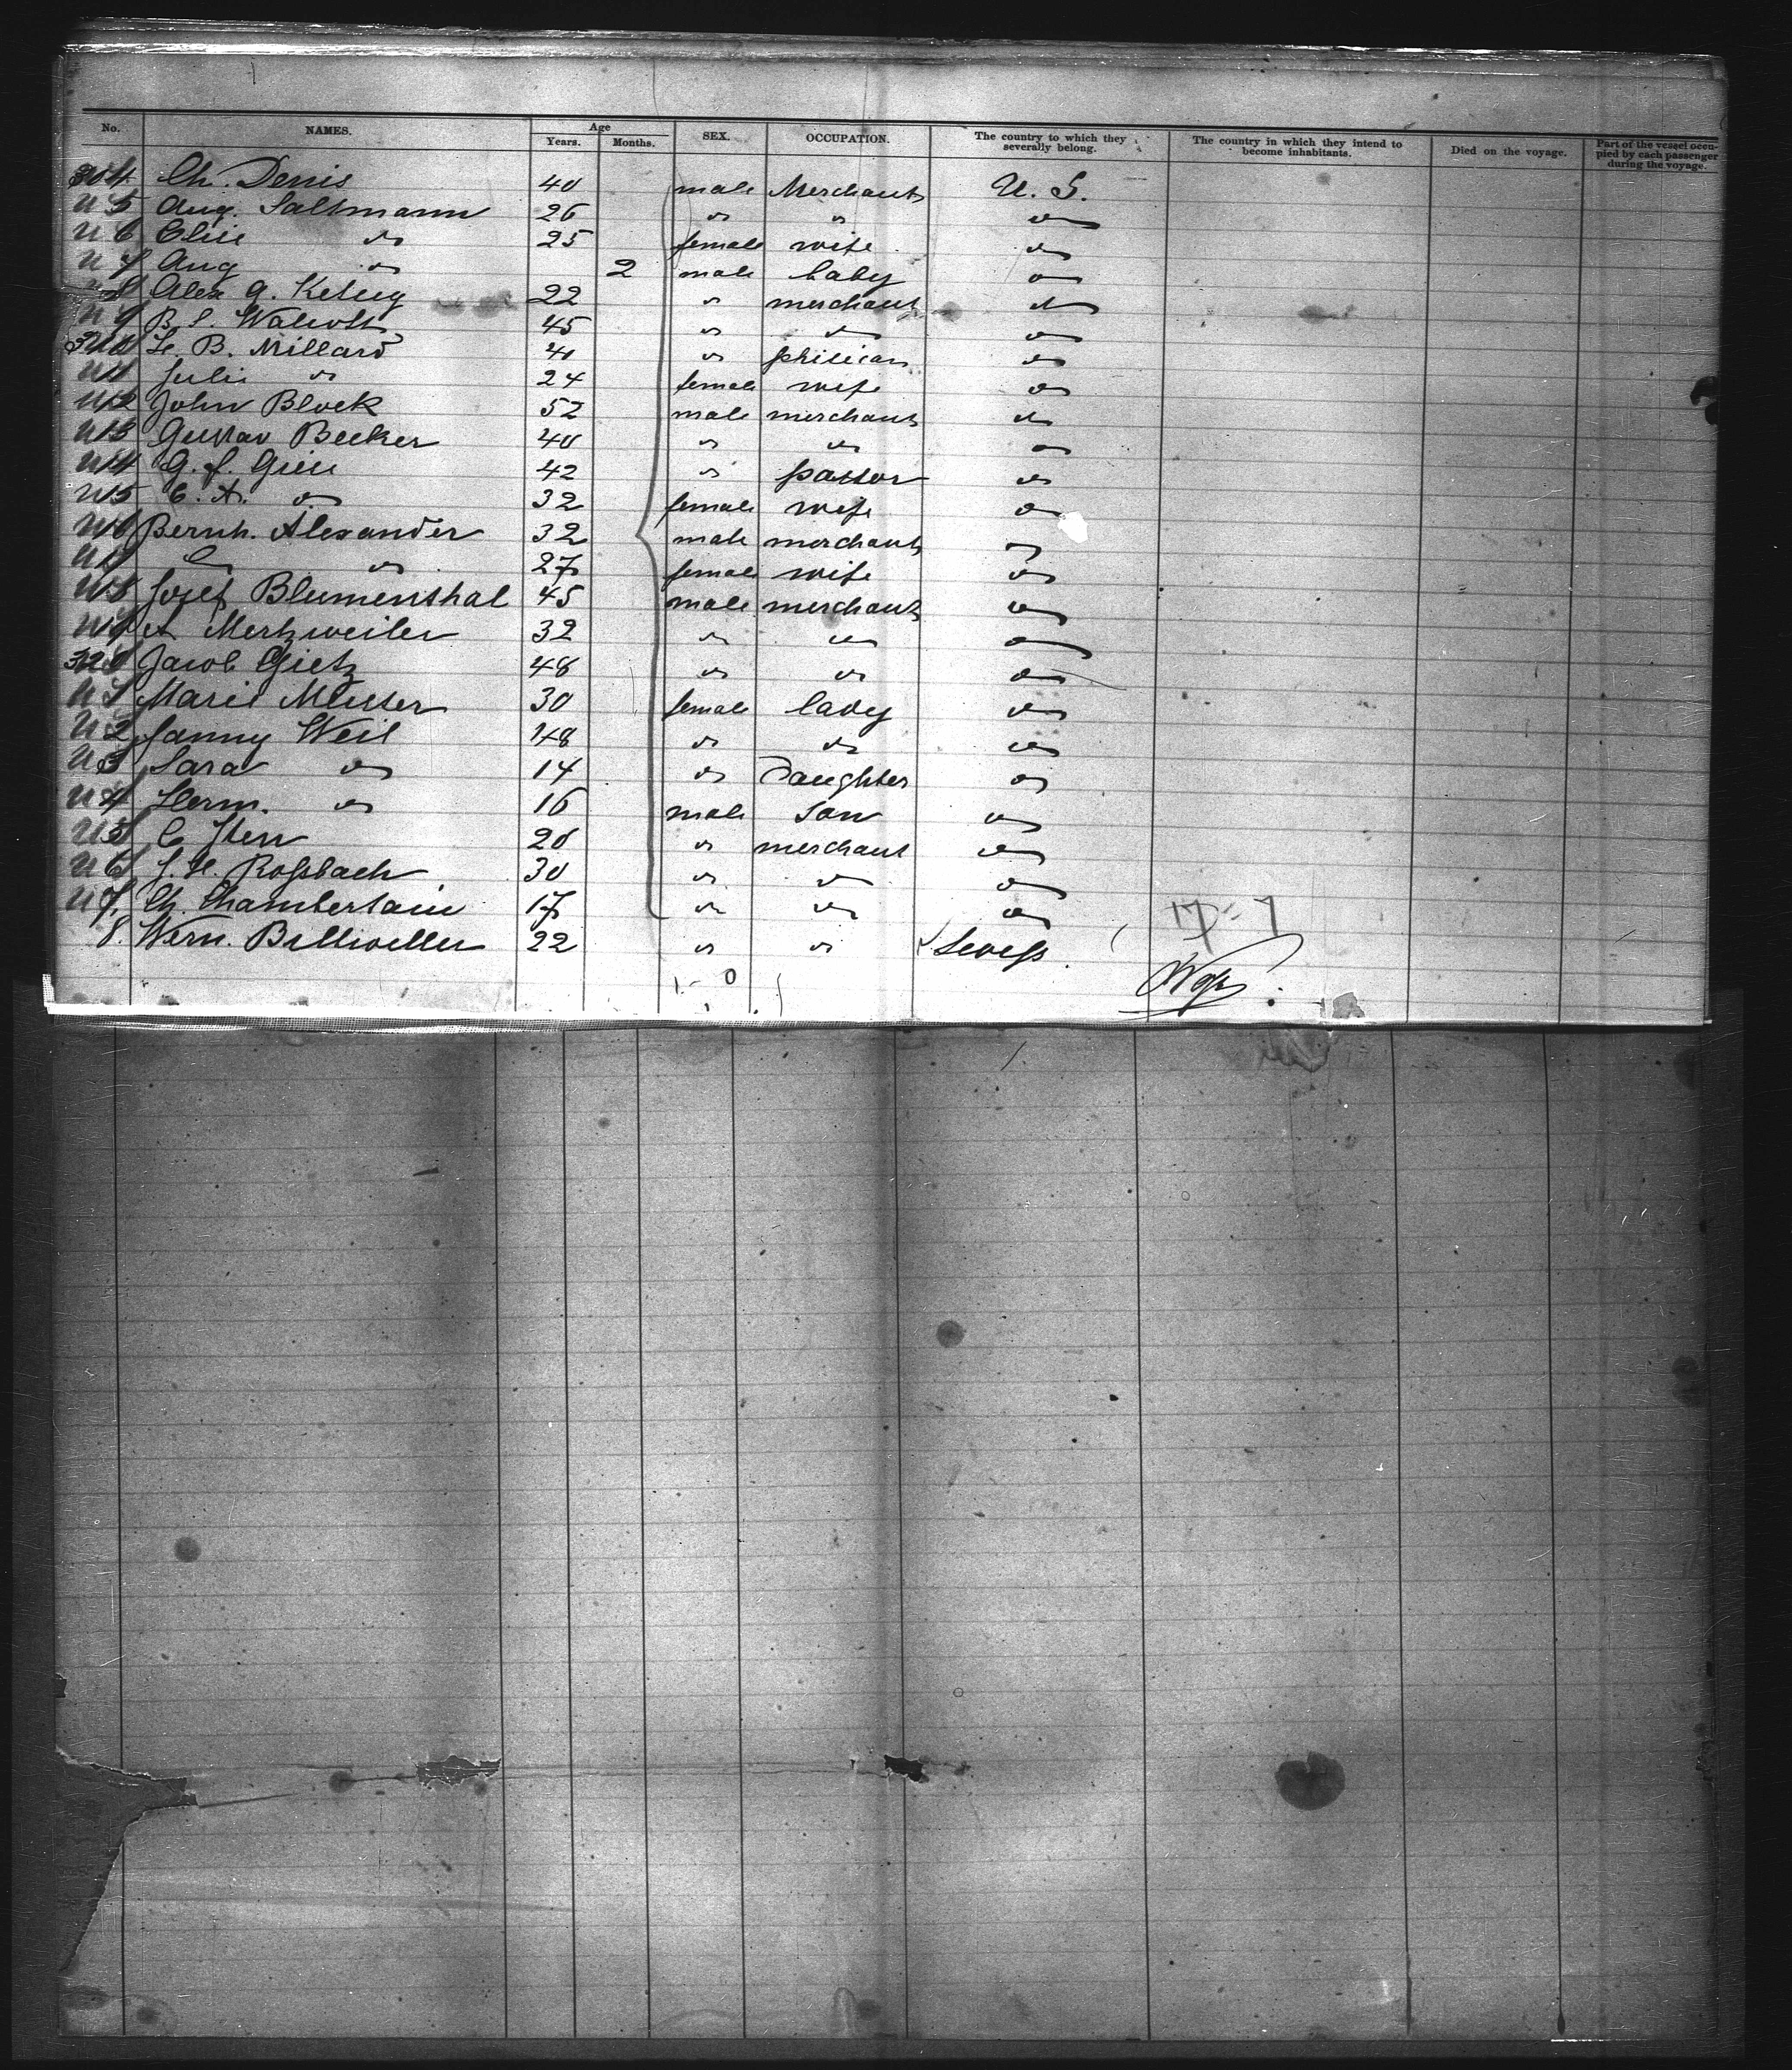 No. NAMES. Age Years. Months. SEX. OCCUPATION. The country to which they severally belong. The country in which they intend to become inhabitants. Died on the voyage. Part of the vessel occupied by each passenger during the voyage.
304 Ch. Denis 40 male Merchant U. S.
5 Aug. Saltmann 26 " " "
6 Elise " 25 female wife "
7 Aug " 2 male baby "
8 Alex A. 22 " merchant "
9 B. S. 45 " " "
310 H. B. Millard 41 " phisician "
11 Julie " 24 female wife "
12 John Block 52 male merchant "
13 Gustav Becker 40 " " "
14 G. f. 42 " pastor "
15 C. A. " 32 female wife "
16 Bernh. Alexander 32 male merchant "
17 " 27 female wife "
18 Josef Blumenthal 45 male merchant "
19 A Mertzweiler 32 " " "
320 Jacob Gietz 48 " " "
1 Marie 30 female lady "
2 Fanny Weil 48 " " "
3 Sara " 14 " Daughter "
4 Herm. " 16 male son "
5 C Stern 20 " merchant "
6 J. H. Roßbach 30 " " "
7 Ch. Chamberlain 17 " " "
8. Wern. Billwiller 22 " "